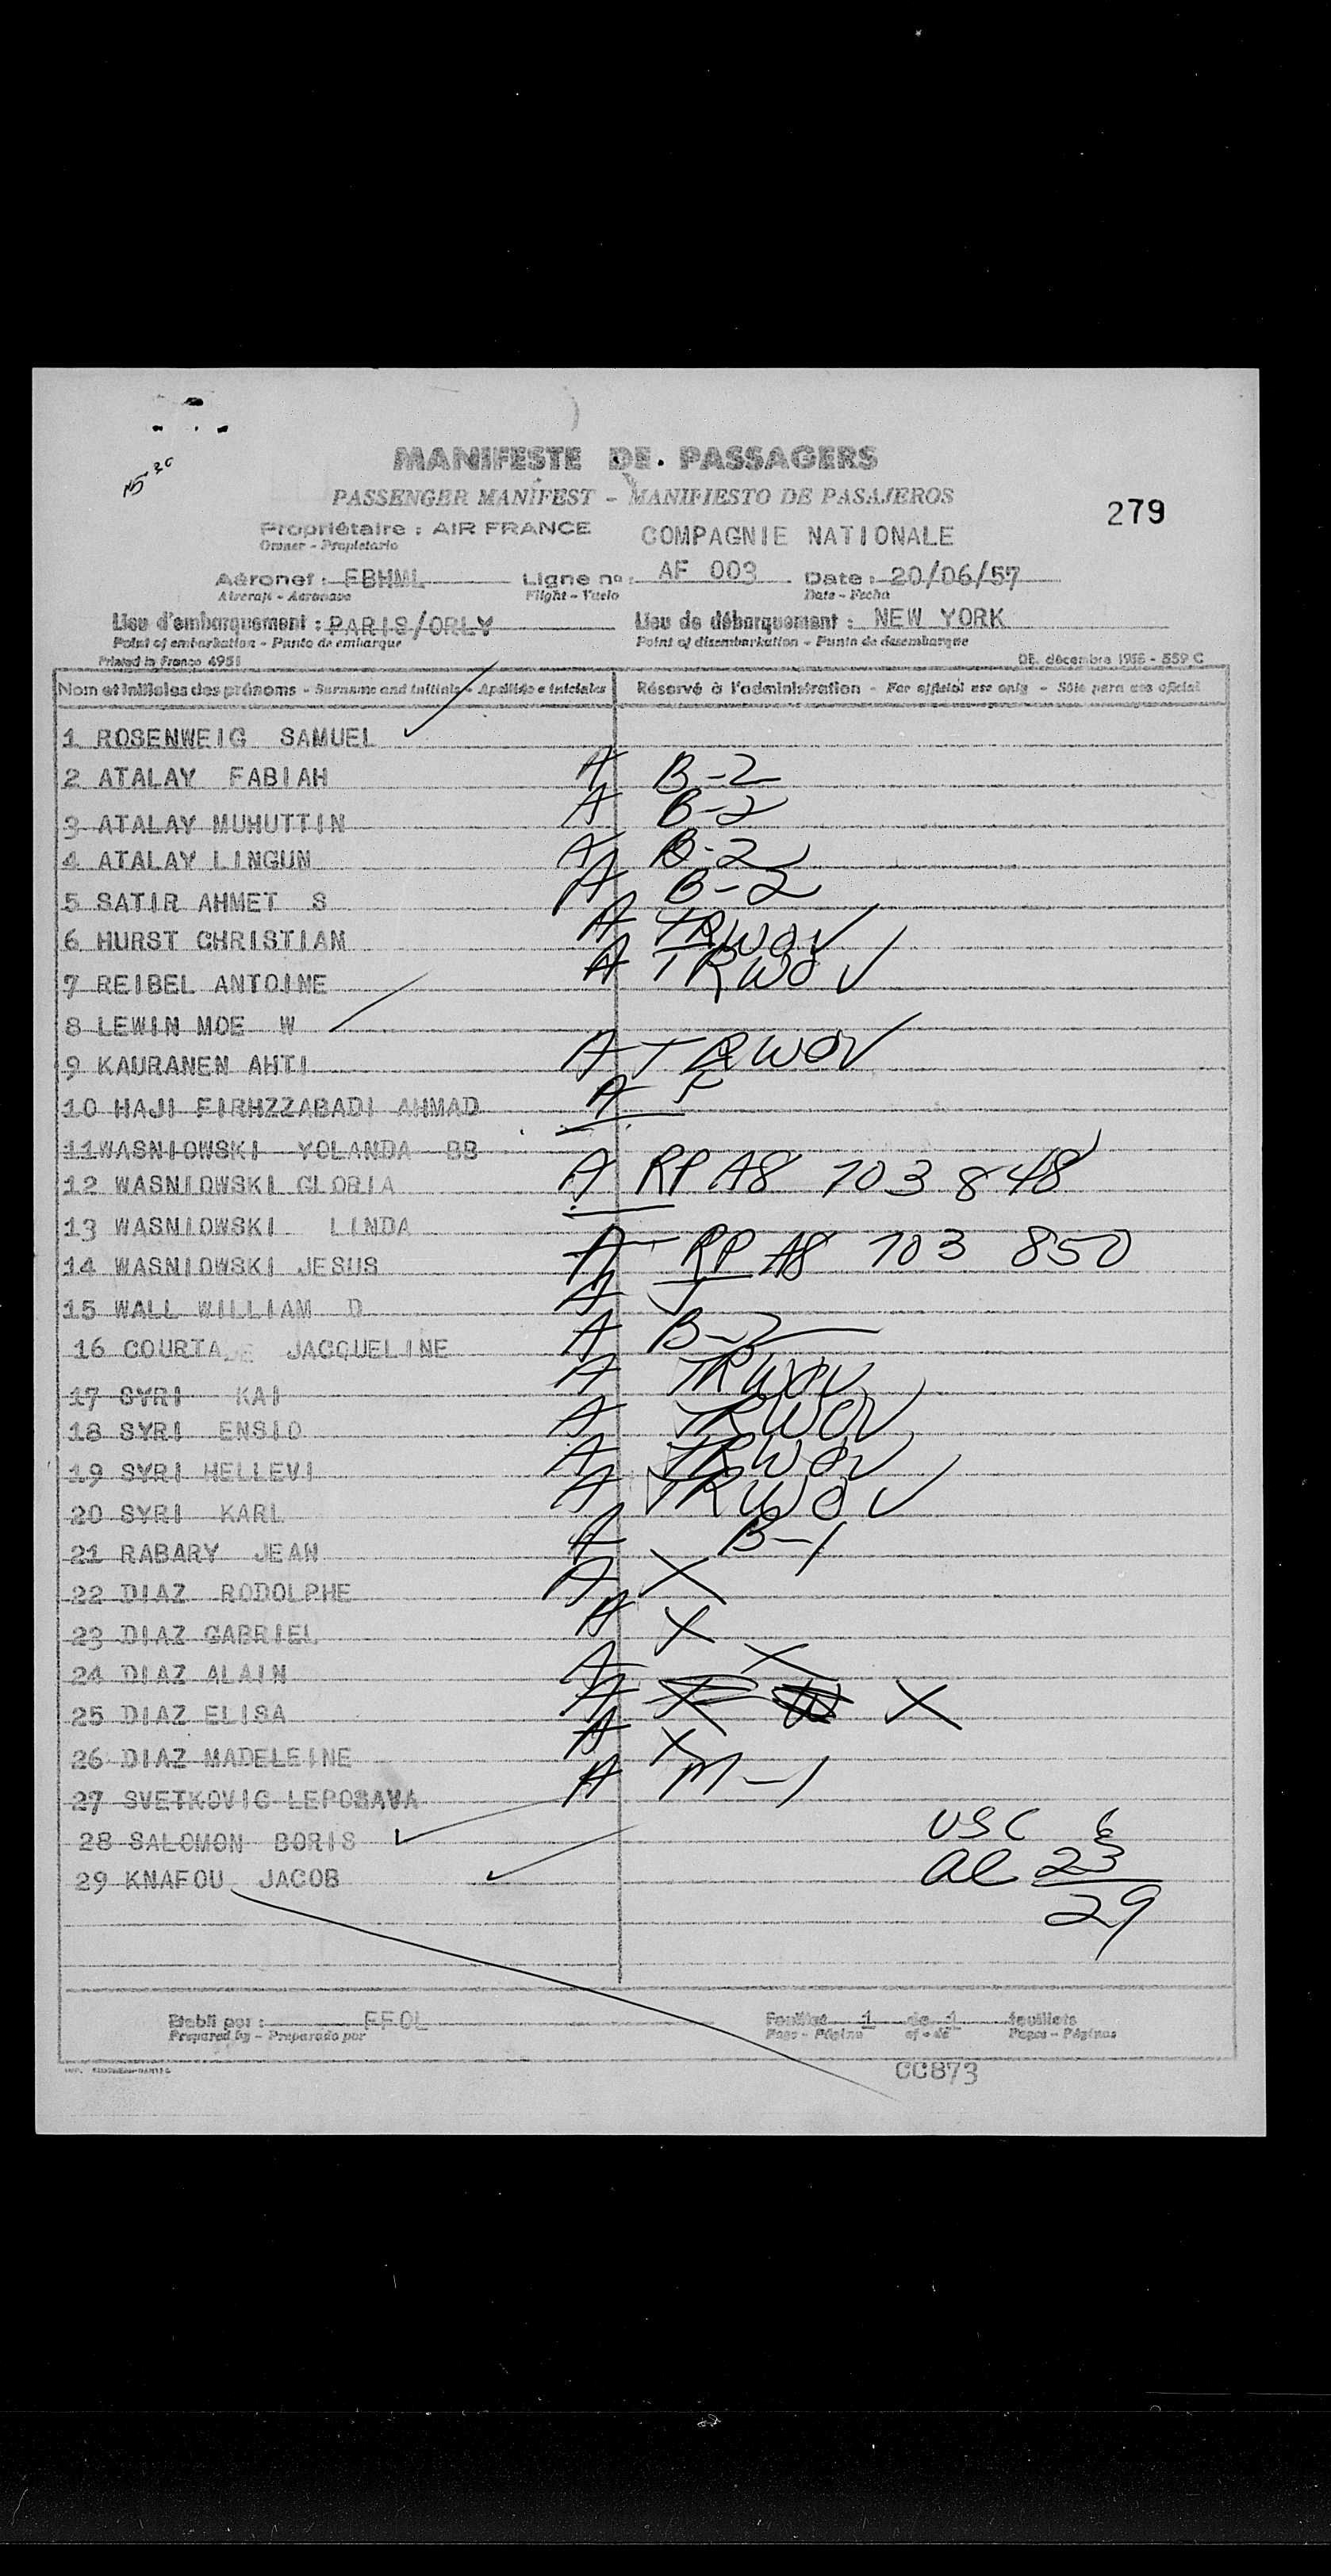 MANIFESTE DE PASSAGERS
PASSENGER MANIFEST - MANIFIESTO DE PASAJEROS
279
Propriétaire : AIR FRANCE COMPAGNIE NATIONALE
Owner - Propietario
Aéronef : FBHML Ligne no : AF 003 Date : 20/06/57
Aircraft - Aeronave Flight - Vuelo Date - Fecha
Lieu d'embarquement : PARIS/ORLY Lieu de débarquement : NEW YORK
Point of embarkation - Punto de embarque Point of disembarkation - Punto de desembarque
Printed in France 4951 DE. décembre 1955 - 559 C
Nom et initiales des prénoms - Surname and initials - Apellido e iniciales Réservé à l'administration - For official use only - Sólo para uso oficial
1 ROSENWEIG SAMUEL
2 ATALAY FABIAH A B-2
3 ATALAY MUHUTTIN A B-2
4 ATALAY LINGUN A B-2
5 SATIR AHMET S A B-2
6 HURST CHRISTIAN A TRWOV
7 REIBEL ANTOINE A TRWOV
8 LEWIN MOE W
9 KAURANEN AHTI A TRWOV
10 HAJI FIRHZZABADI AHMAD A F
11 WASNIOWSKI YOLANDA BB
12 WASNIOWSKI GLORIA A RP A8 103 848
13 WASNIOWSKI LINDA
14 WASNIOWSKI JESUS A RP A8 103 850
15 WALL WILLIAM D A
16 COURTA JACQUELINE A B-2
17 SYRI KAI A TRWOV
18 SYRI ENSIO A TRWOV
19 SYRI HELLEVI A TRWOV
20 SYRI KARL A TRWOV
21 RABARY JEAN A B-1
22 DIAZ RODOLPHE A X
23 DIAZ GABRIEL A X
24 DIAZ ALAIN A X
25 DIAZ ELISA A X
26 DIAZ MADELEINE A X
27 SVETKOVIC LEPOSAVA A M-1
28 SALOMON BORIS USC 6
29 KNAFOU JACOB al 23
29
Etabli par : FFOL Feuillet 1 de 1 feuillets
Prepared by - Preparado por Page - Página of - de Pages - Páginas
CC873